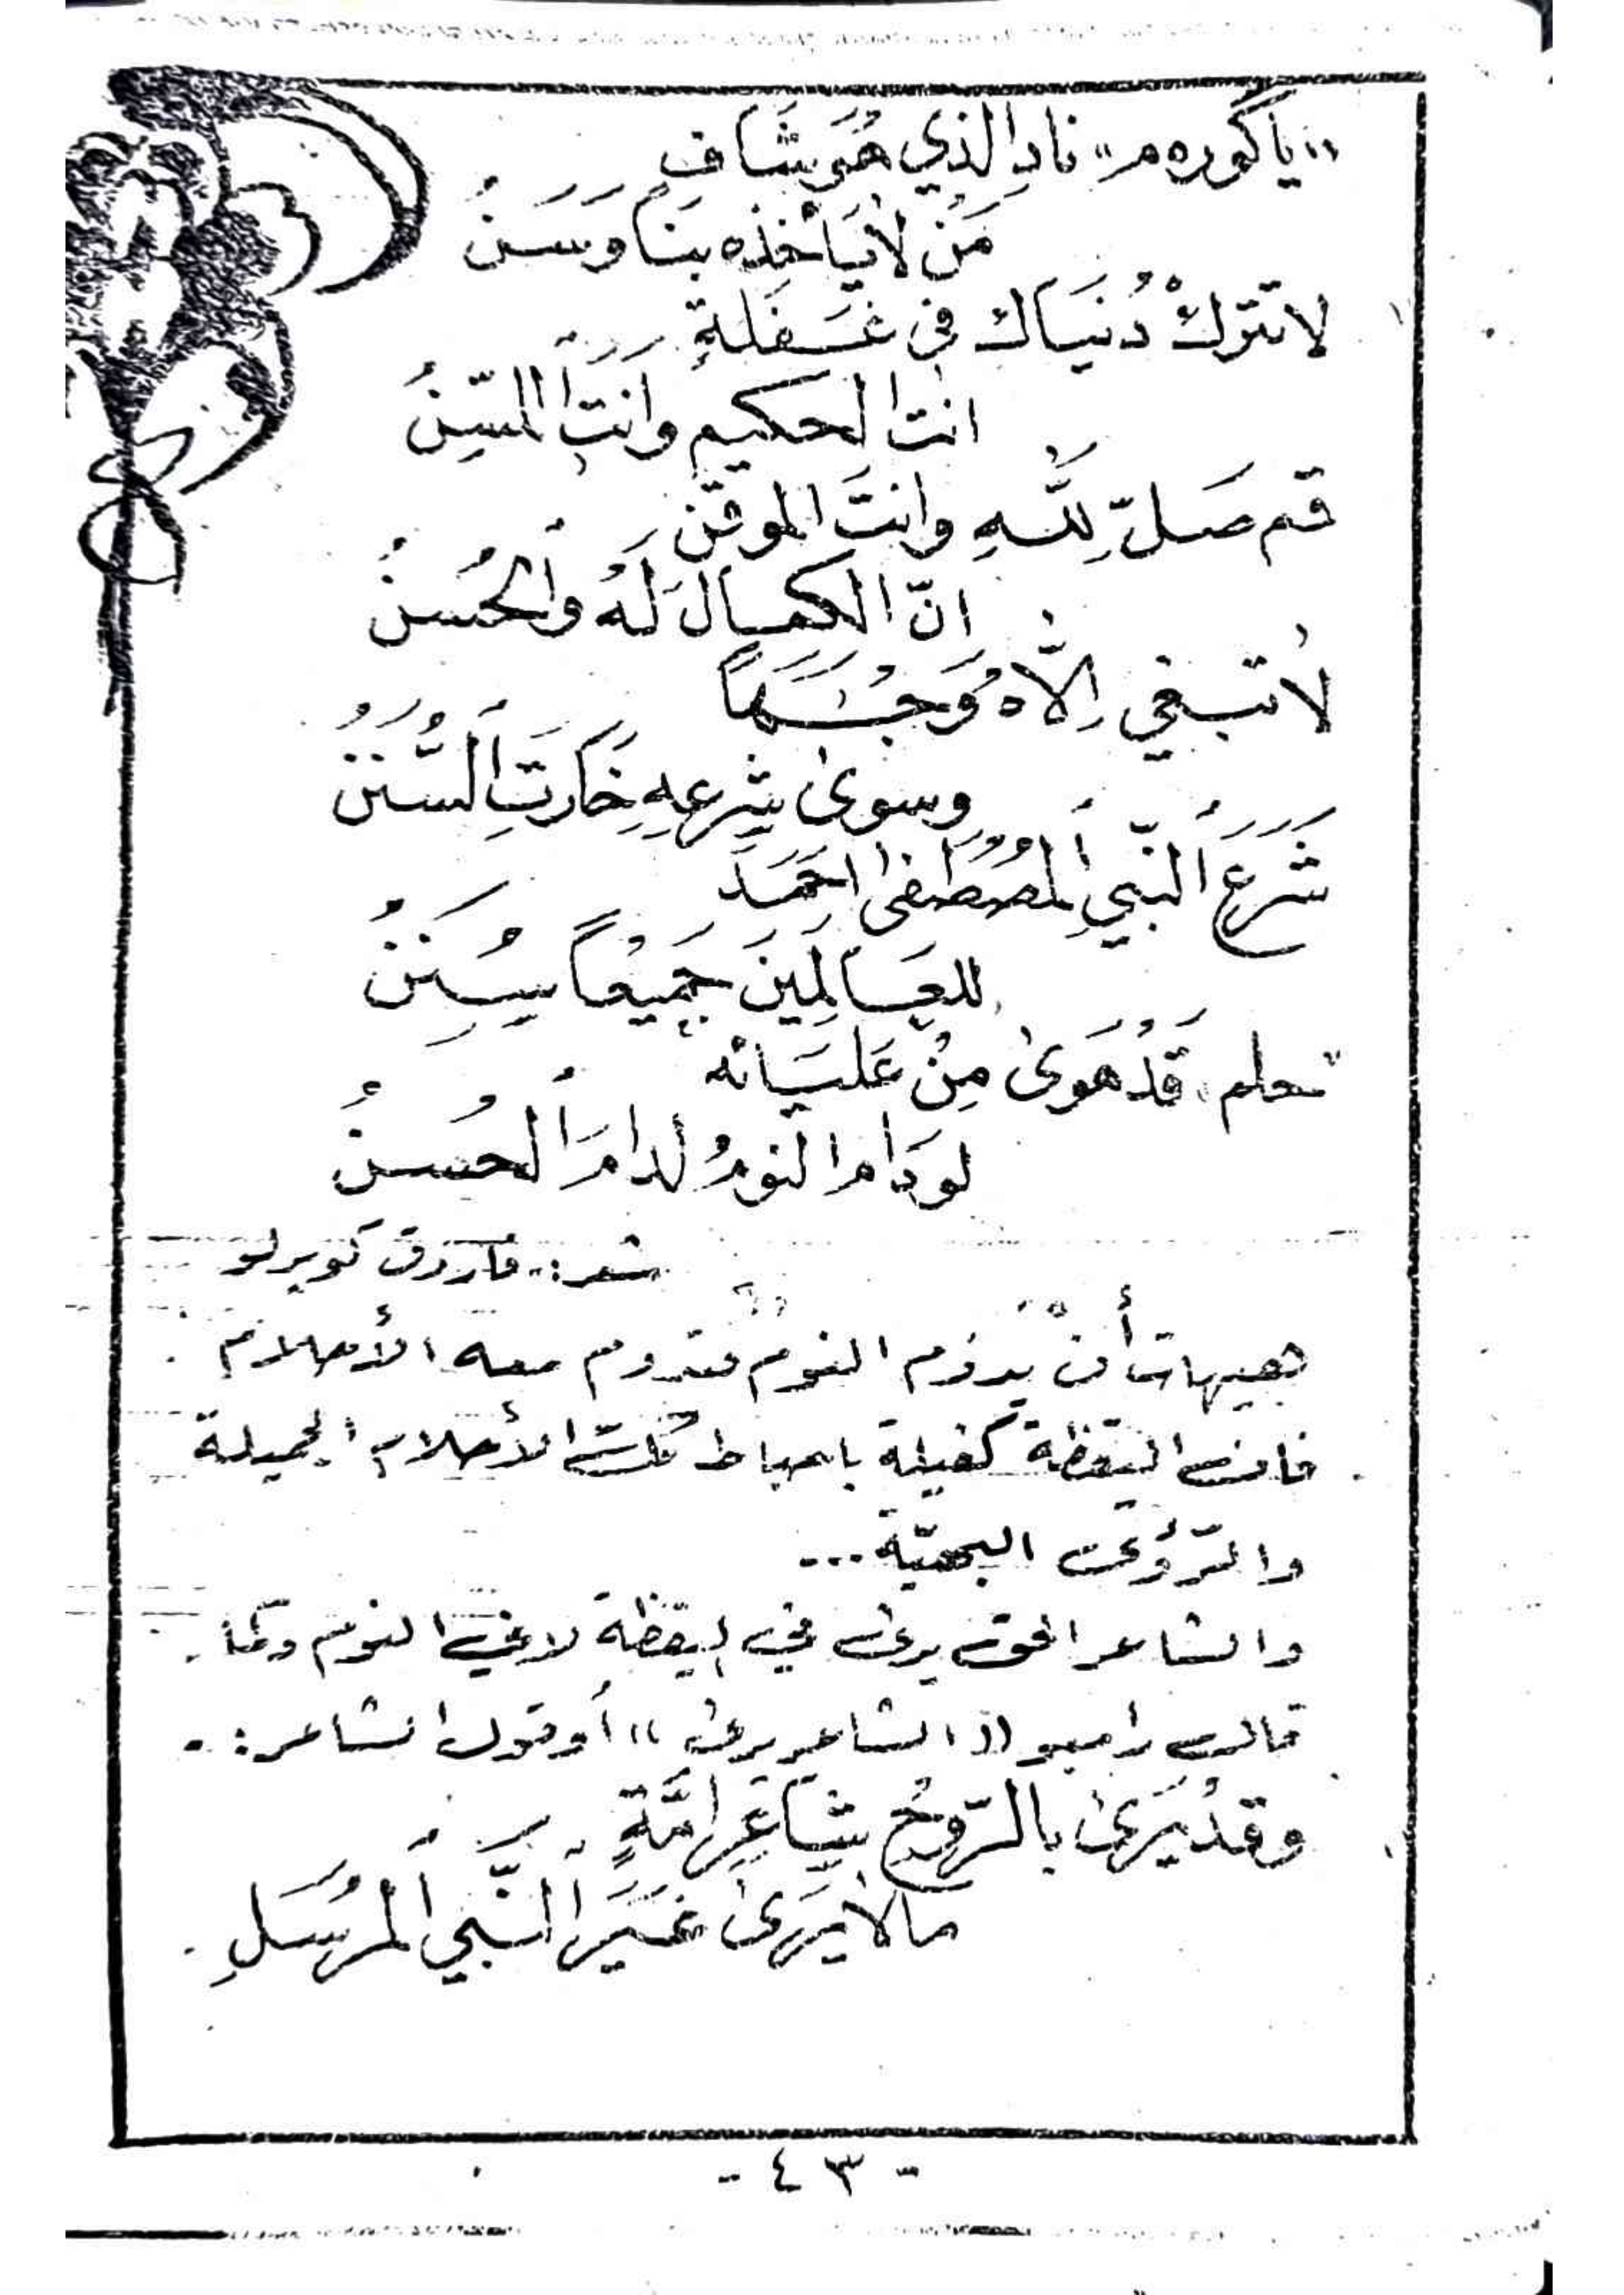 «ياگوره م» نادِ الذي هُوَ شَافٍ
مَنْ لا يَأخذه بنا وَسَنُ
لا تتركْ دُنيَاك في غَفلةٍ
انتَ الحكيم وانتَ المسِنُ
قم صَلّ لِلّهِ وانتَ الموقن
انّ الكمال لَهُ والحُسنُ
لا تبغي اِلّاهُ وَجْهاً
وسوى شرعِهِ خَارَتِ السُّنَنُ
شَرَعَ النّبيِ المُصْطَفى احمَدَ
للعَالَمِينَ جَمِيعْاً سُنَنُ
حلم قَدْ هَوى مِنْ عَليَائه
لو دَام النومُ لدامَ الحُسنُ
شعر:- فاروق كوبرلو
هيهات أن يدوم النوم فتدوم معه الأحلام .
فان اليقظة كفيلة باحباط تلك الأحلام الجميلة
والرّؤى البهيّة ...
والشاعر الحق يرى في اليقظة لا في النوم وكما
قال رامبو «الشاعر يرى» أو قول الشاعر:-
وقدْ يَرَى بالرّوحِ شَاعِرُ امَّةٍ
مالا يَرَى غَيرَ النّبيِ المُرْسَلِ .
- ٤٣ -